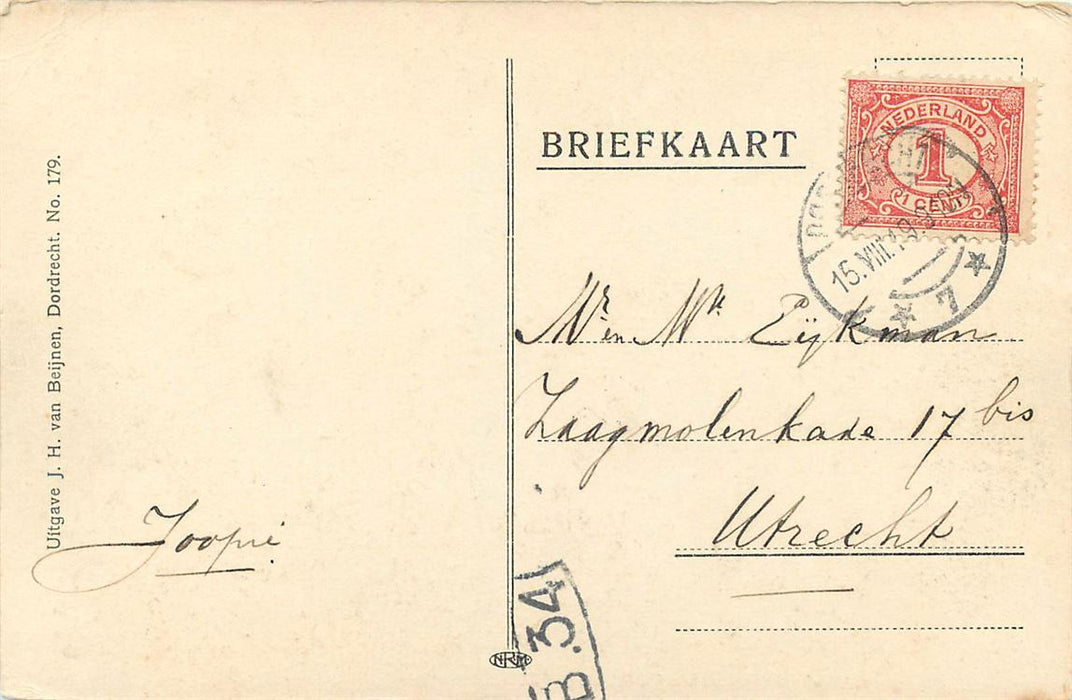 Uitgave J. H. van Beijnen, Dordrecht. No. 179.
Joopie
BRIEFKAART
NEDERLAND
1
1 CENT
15.VIII.19
7
Mr en Mw Eijkman
Zaagmolenkade 17 bis
Utrecht
B.34
NRM